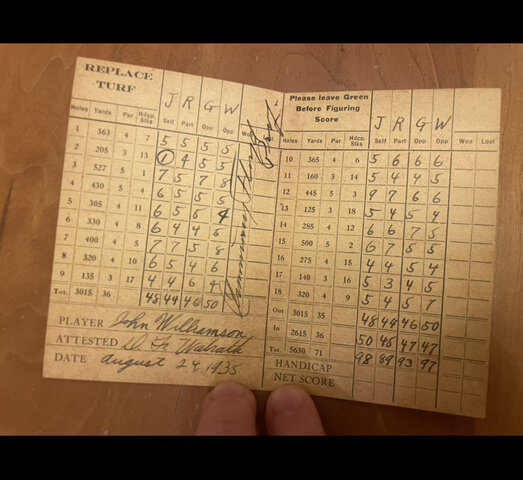 REPLACE
TURF
J R G W
Holes Yards Par Hdcp. Stks Self Part Opp Opp Won
1 363 4 7 5 5 5 5
2 205 3 13 1 4 5 5
3 527 5 1 7 5 7 8
4 430 5 4 6 5 5 5
5 305 4 11 6 5 5 4
6 330 4 8 6 4 4 6
7 400 4 5 7 7 5 8
8 320 4 10 6 5 4 6
9 135 3 17 4 4 6 4
Tot. 3015 36 48 44 46 50
PLAYER John Williamson
ATTESTED Walrath
DATE August 24, 1935
Please leave Green
Before Figuring
Score
J R G W
Holes Yards Par Hdcp. Stks Self Part Opp Opp Won Lost
10 365 4 6 5 6 6 6
11 160 3 14 5 4 4 5
12 445 5 3 9 7 6 6
13 125 3 18 5 4 5 4
14 285 4 12 6 6 7 5
15 500 5 2 6 7 5 5
16 275 4 15 4 4 5 4
17 140 3 16 5 3 4 5
18 320 4 9 5 4 5 7
Out 3015 35 48 44 46 50
In 2615 36 50 45 47 47
Tot. 5630 71 98 89 93 97
HANDICAP
NET SCORE